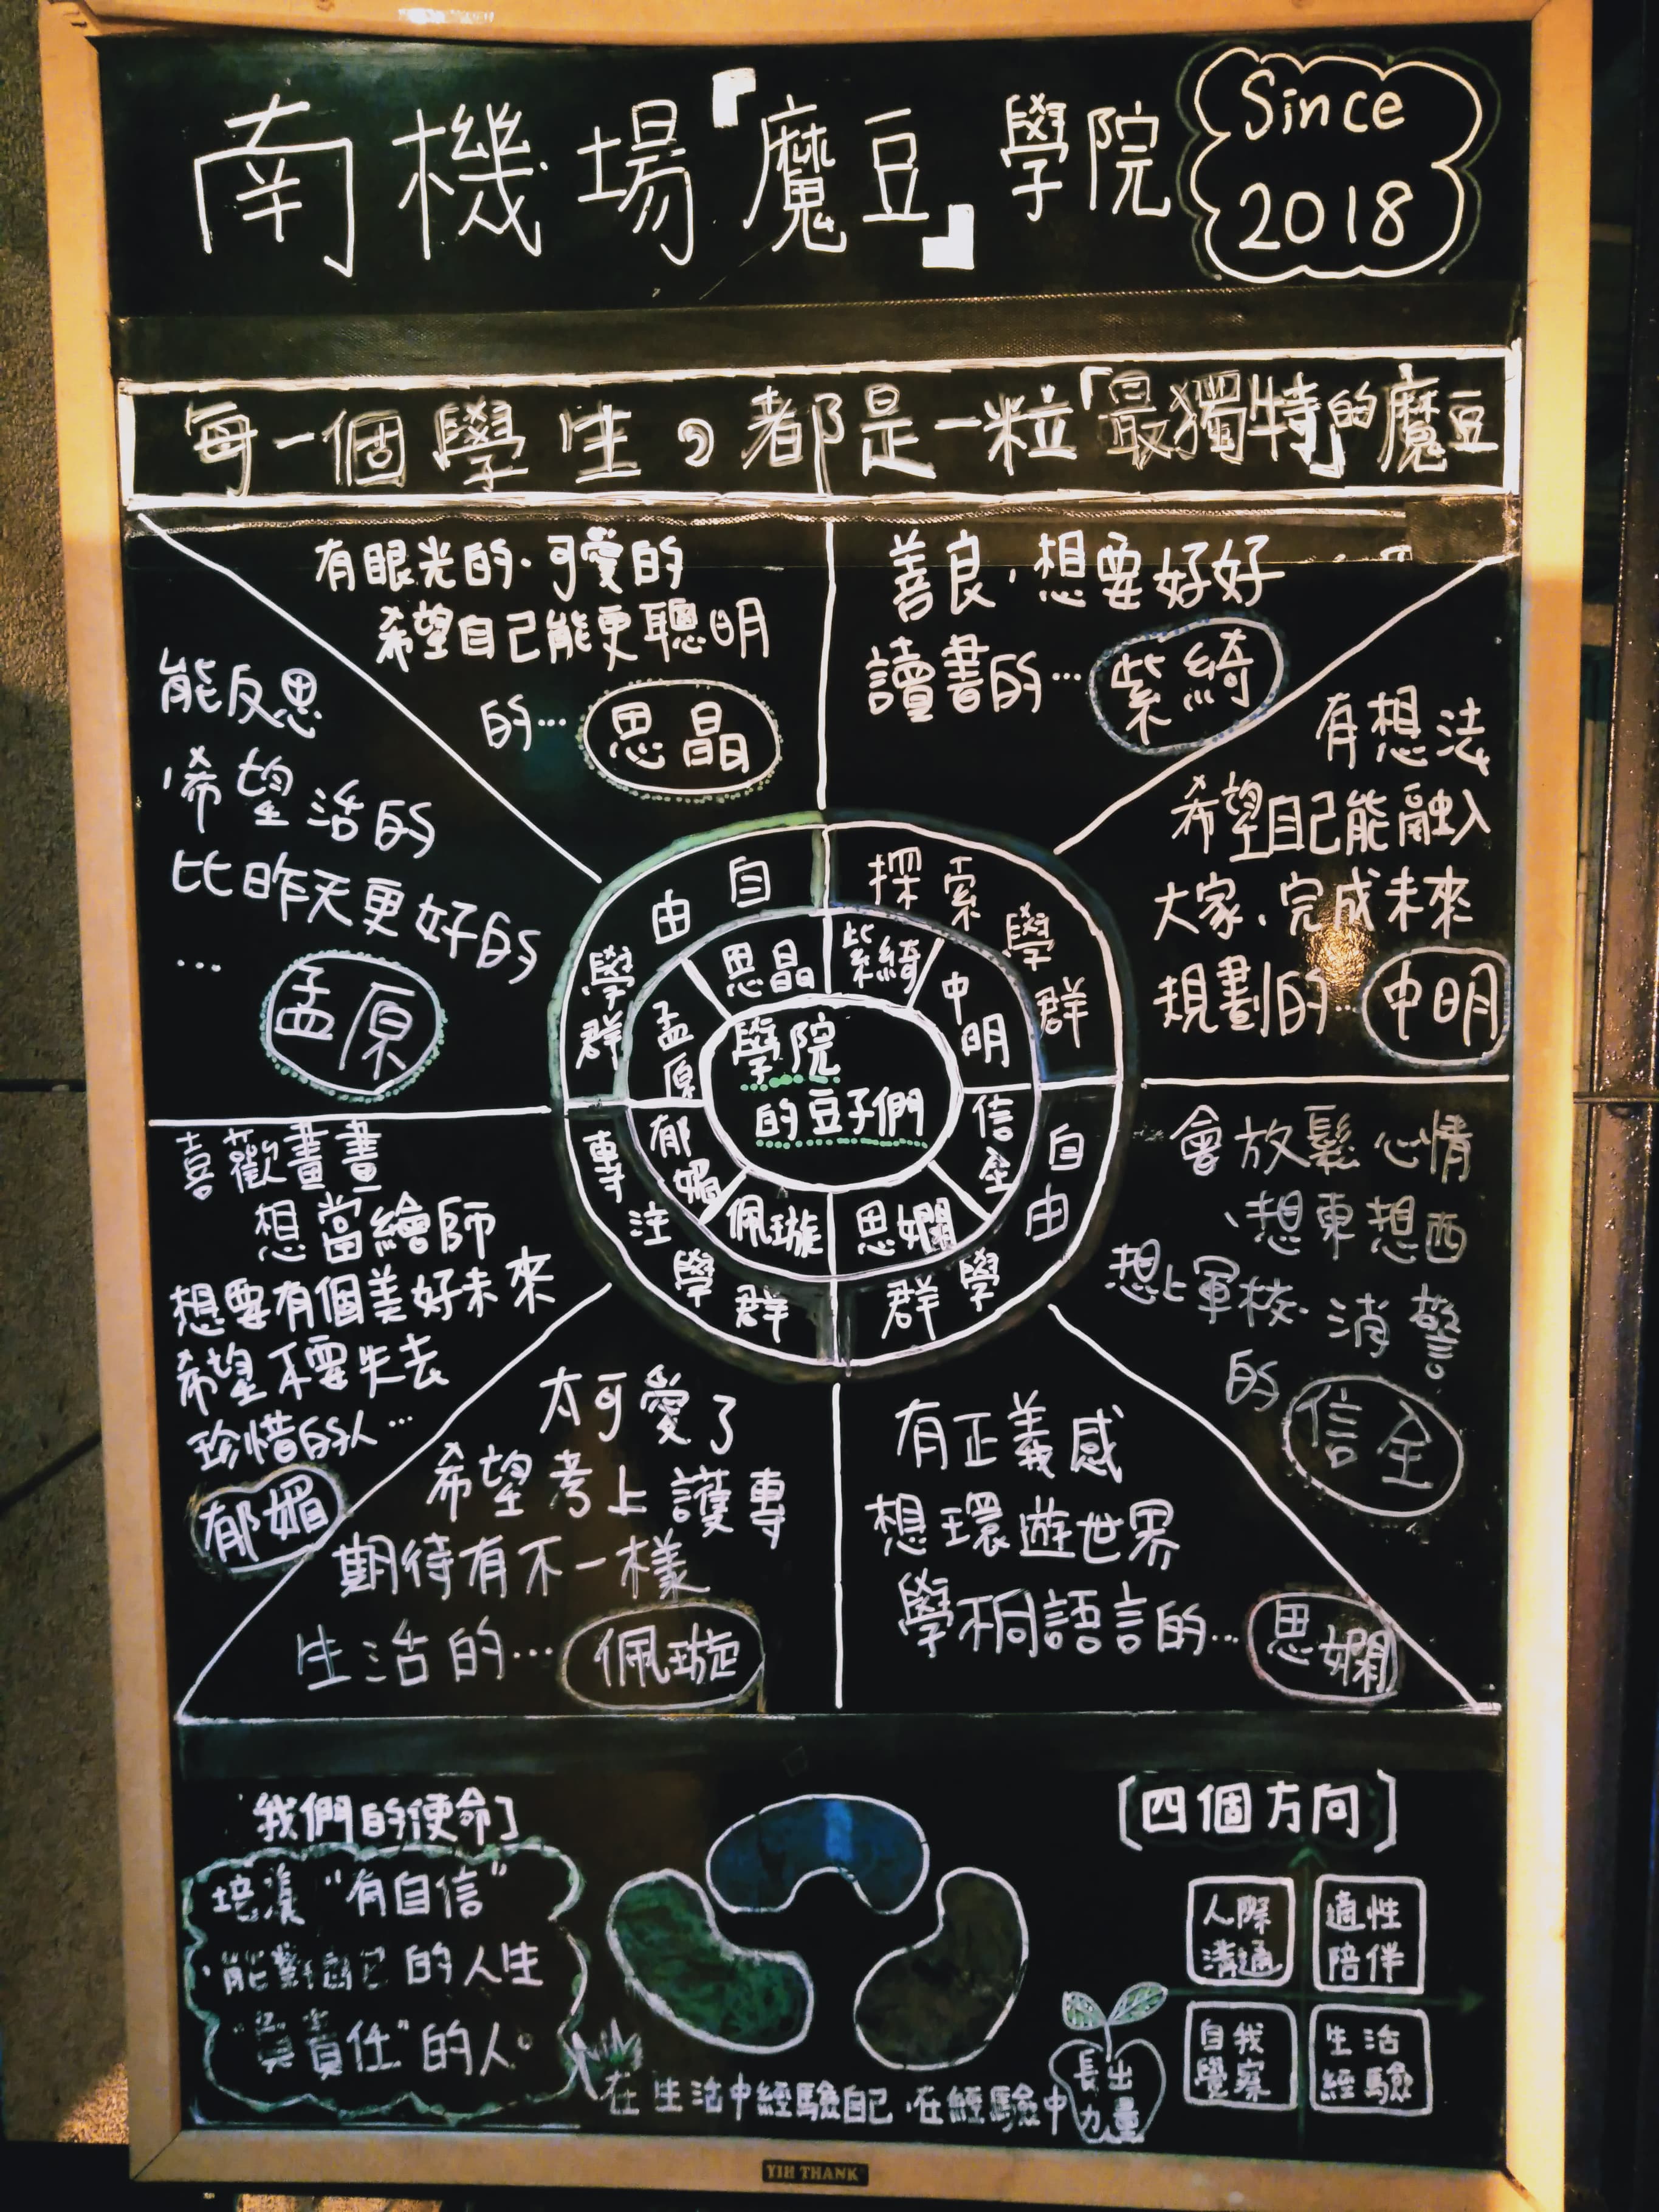 南機場『魔豆』學院
Since
2018
每一個學生,都是一粒「最獨特」的魔豆
有眼光的、可愛的
希望自己能更聰明
的…
思晶
善良、想要好好
讀書的…
紫綺
有想法
希望自己能融入
大家、完成未來
規劃的…
中明
會放鬆心情
、想東想西
想上軍校、消警
的
信全
有正義感
想環遊世界
學不同語言的…
思嫻
太可愛了
希望考上護專
期待有不一樣
生活的…
佩璇
喜歡畫畫
想當繪師
想要有個美好未來
希望不要失去
珍惜的人…
郁媚
能反思
、希望活的
比昨天更好的
…
孟原
自由學群
探索學群
自由學群
專注學群
思晶
紫綺
中明
信全
思嫻
佩璇
郁媚
孟原
學院
的豆子們
我們的使命]
培養“有自信”
、能對自己的人生
“負責任”的人。
在生活中經驗自己、在經驗中
長出
力量
[四個方向]
人際
溝通
適性
陪伴
自我
覺察
生活
經驗
YIH THANK